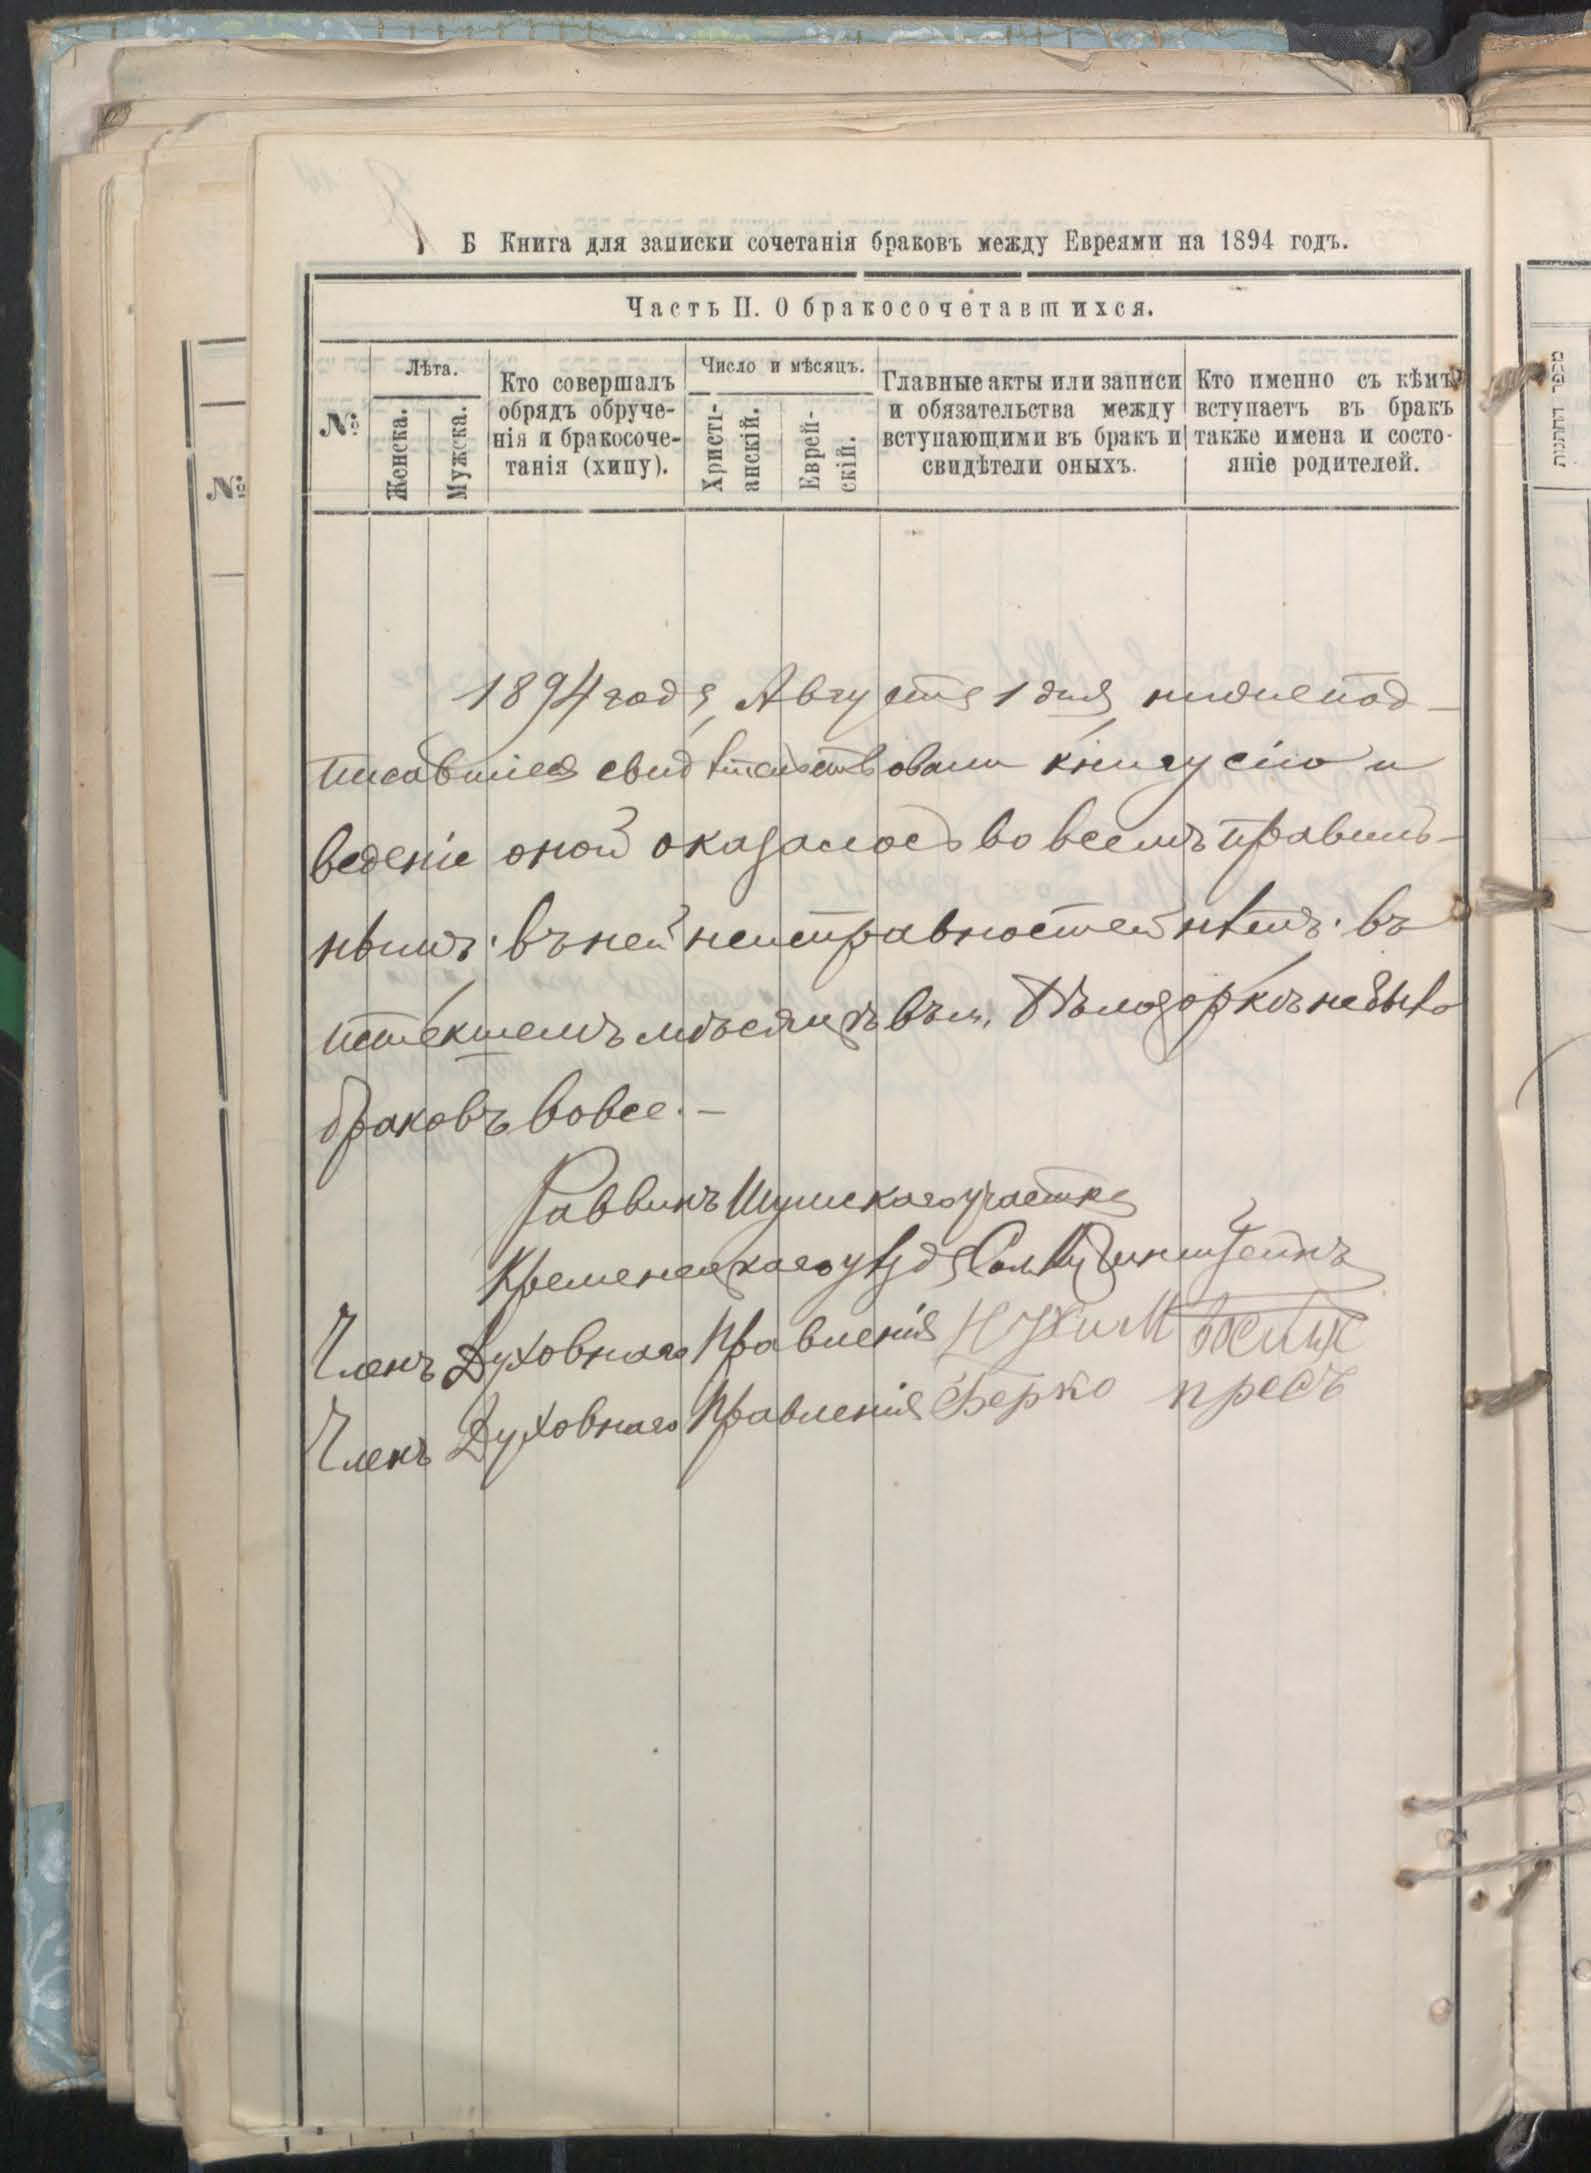 Б Книга для записки сочетанія браковъ между Евреями на 1894 годъ.
Часть II. О бракосочетавшихся.
№
Лѣта.
Женска.
Мужска.
Кто совершалъ
обрядъ обруче-
нія и бракосоче-
танія (хипу).
Число и мѣсяцъ.
Христі-
анскій.
Еврей-
скій.
Главные акты или записи
и обязательства между
вступающими въ бракъ и
свидѣтели оныхъ.
Кто именно съ кѣмъ
вступаетъ въ бракъ
также имена и состо-
яніе родителей.
1894 года, Августа 1 дня, нижепод-
писавшіеся свидѣтельствовали книгу сію и
веденіе оной оказалось во всемъ правиль-
нымъ. въ ней неисправностей нѣтъ. въ
истекшемъ мѣсяцѣ въ м. Бѣлозоркѣ не было
браковъ вовсе. —
Раввинъ Шумскаго участка
Кременецкаго уѣзда
Членъ Духовнаго Правленія Нухим
Членъ Духовнаго Правленія Берко пресъ
№